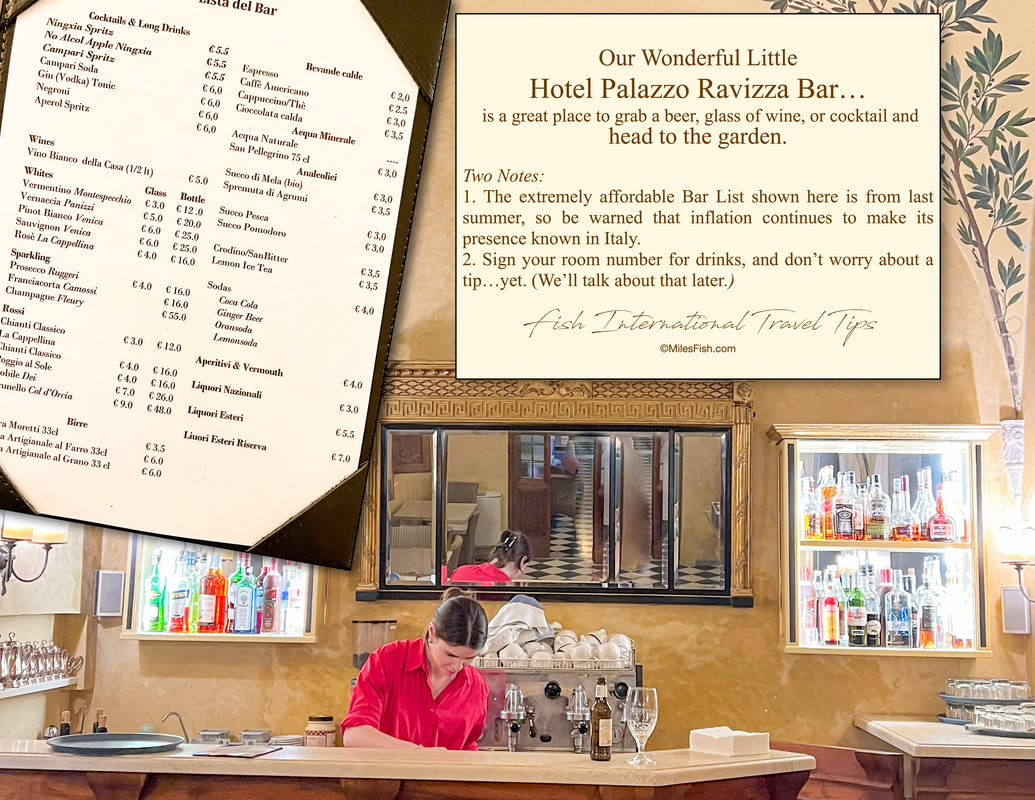 Lista del Bar
Cocktails & Long Drinks
Ningxia Spritz € 5.5
No Alcol Apple Ningxia € 5.5
Campari Spritz € 5.5
Campari Soda € 6,0
Gin (Vodka) Tonic € 6,0
Negroni € 6,0
Aperol Spritz € 6,0
Wines
Vino Bianco della Casa (1/2 lt) € 5.0
Whites Glass Bottle
Vermentino Montespecchio € 3.0 € 12 .0
Vernaccia Panizzi € 5.0 € 20.0
Pinot Bianco Venica € 6.0 € 25.0
Sauvignon Venica € 6.0 € 25.0
Rosè La Cappellina € 4.0 € 16.0
Sparkling
Prosecco Ruggeri € 4.0 € 16.0
Franciacorta Camossi € 16.0
Champagne Fleury € 55.0
Rossi
Chianti Classico € 3.0 € 12.0
La Cappellina
Chianti Classico € 4.0 € 16.0
oggio al Sole € 4.0 € 16.0
obile Dei € 7.0 € 26.0
unello Col d'Orcia € 9.0 € 48.0
Birre
a Moretti 33cl € 3.5
a Artigianale al Farro 33cl € 6.0
a Artigianale al Grano 33 cl € 6.0
Bevande calde
Espresso € 2,0
Caffè Americano € 2.5
Cappuccino/Thè € 3,0
Cioccolata calda € 3,5
Acqua Minerale
Acqua Naturale ----
San Pellegrino 75 cl € 3,0
Analcolici
Succo di Mela (bio) € 3,0
Spremuta di Agrumi € 3,5
Succo Pesca € 3,0
Succo Pomodoro € 3,0
Crodino/SanBitter € 3,5
Lemon Ice Tea € 3,5
Sodas € 4,0
Coca Cola
Ginger Beer
Oransoda
Lemonsoda
Aperitivi & Vermouth € 4.0
Liquori Nazionali € 3.0
Liquori Esteri € 5.5
Liuori Esteri Riserva € 7.0
Our Wonderful Little
Hotel Palazzo Ravizza Bar…
is a great place to grab a beer, glass of wine, or cocktail and
head to the garden.
Two Notes:
1. The extremely affordable Bar List shown here is from last
summer, so be warned that inflation continues to make its
presence known in Italy.
2. Sign your room number for drinks, and don't worry about a
tip…yet. (We'll talk about that later.)
Fish International Travel Tips
©MilesFish.com